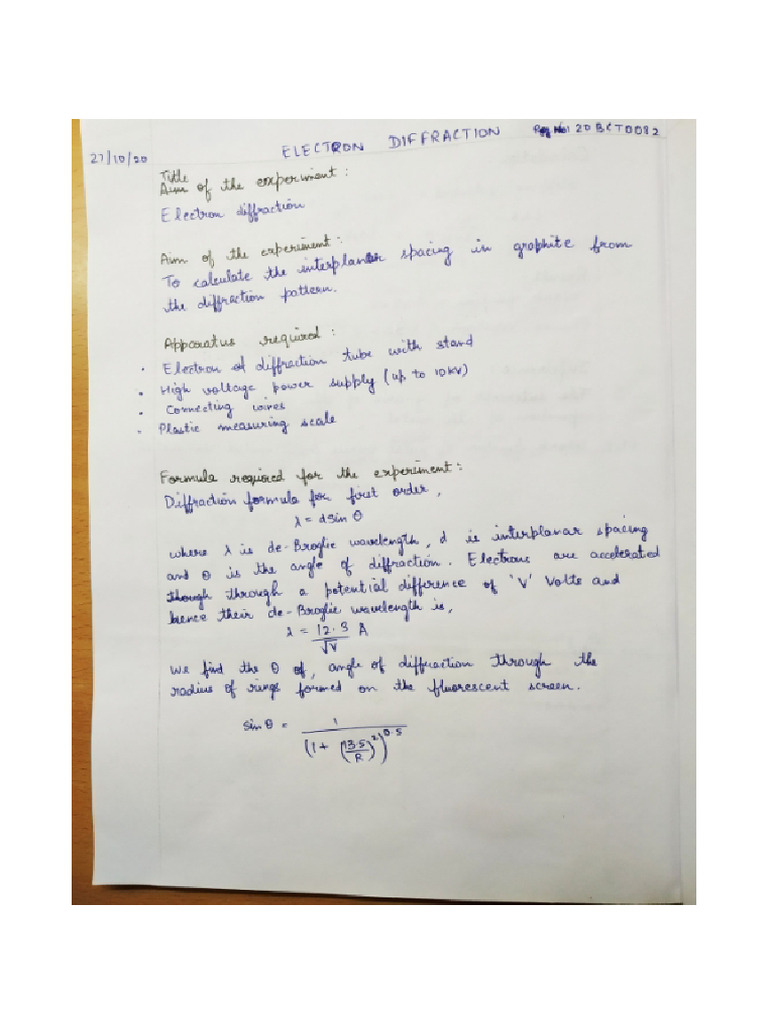 27/10/20 ELECTRON DIFFRACTION Reg No: 20BCT0082
Title
Aim of the experiment:
Electron diffraction
Aim of the experiment:
To calculate the interplanar spacing in graphite from
the diffraction pattern.
Apparatus required:
• Electron diffraction tube with stand
• High voltage power supply (up to 10KV)
• Connecting wires
• Plastic measuring scale
Formula required for the experiment:
Diffraction formula for first order,
λ = dsin θ
where λ is de-Broglie wavelength, d is interplanar spacing
and θ is the angle of diffraction. Electrons are accelerated
though through a potential difference of 'V' Volts and
hence their de-Broglie wavelength is,
λ = 12.3 A
√V
We find the θ of, angle of diffraction through the
radius of rings formed on the fluorescent screen.
sin θ = 1
(1 + (13.5/R)²)^0.5